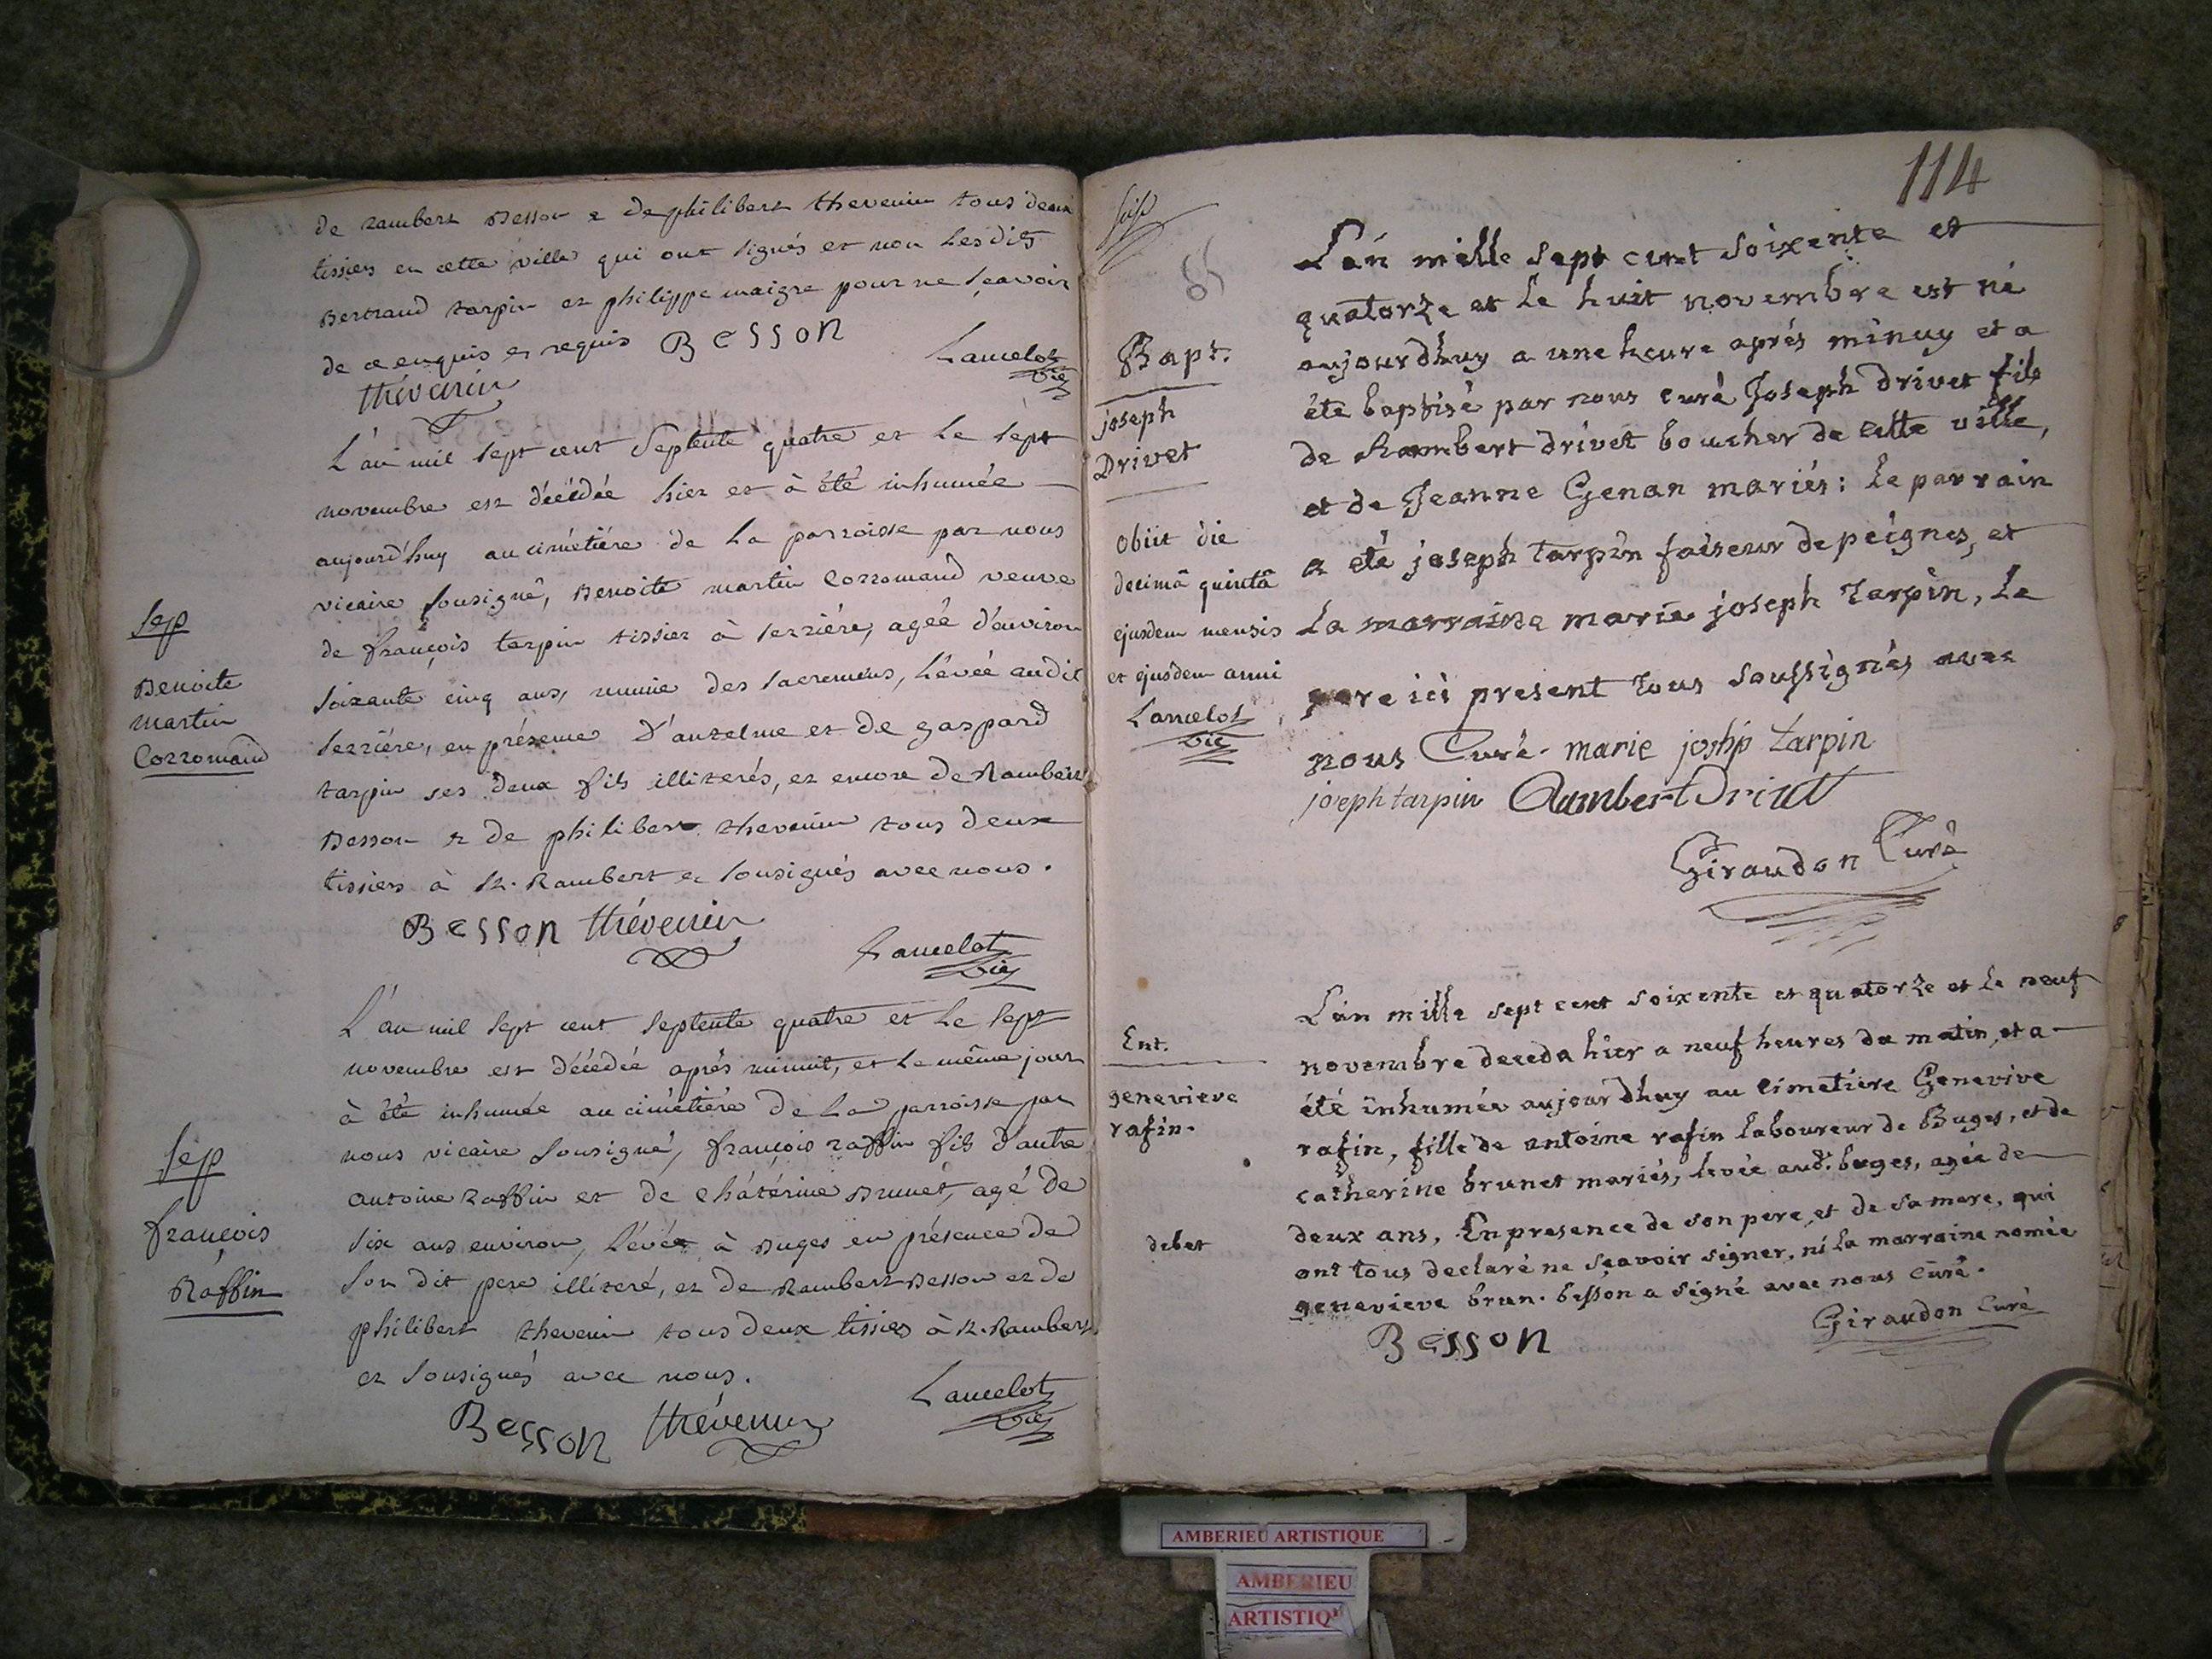 de rambert Besson & de philibert thevenin tous deux
tissiers en cette ville qui ont signés et non lesdits
Bertrand tarpin et philippe maigre pour ne sçavoir
de ce enquis et requis Besson
Lancelot
vic
thévenin
L'an mil sept cent septente quatre et le sept
novembre est décédée hier et à été inhumée
aujourd'huy au cimétiére de la parroisse par nous
vicaire sousigné, Benoite martin Corromand veuve
de françois tarpin tissier à serriére, agée d'environ
soixante cinq ans, munie des sacremens, lévée audit
serriére, en présence d'antelme et de gaspard
tarpin ses deux fils illiterés, et encore de Rambert
Besson & de philibert thevenin tous deux
tissiers à st. Rambert et sousignés avec nous.
sep
Benoite
martin
Corromand
Besson thévenin
Lancelot
vic
L'an mil sept cent septente quatre et le sept
novembre est décédée aprés minuit, et le même jour
à été inhumée au cimétiére de la parroisse par
nous vicaire sousigné, françois raffin fils d'autre
antoine Raffin et de Chátérine Brunet, agé de
six ans environ, lévée à Buges en présence de
son dit pere illiteré, et de Rambert Besson et de
philibert thevenin tous deux tissiers à st. Rambert
et sousignés avec nous.
sep
françois
Raffin
Lancelot
vic
Besson thévenin
114
Bapt.
joseph
Drivet
obiit die
decimâ quintâ
ejusdem mensis
et ejusdem anni
Lancelot
vic
L'an mille sept cent soixente et
quatorze et le huit novembre est né
aujourdhuy a une heure aprés minuy et a
éte baptisé par nous curé Joseph drivet fils
de Rambert drivet boucher de cette ville,
et de Jeanne Genan mariés: le parrain
a eté joseph tarpin faiseur de peignes, et
la marraine marie joseph tarpin, le
pere ici present tous soussignés avec
nous Curé. marie joshp tarpin
joseph tarpin Rambert Drivet
Giraudon Curé
Ent.
genevieve
rafin.
debet
L'an mille sept cent soixente et quatorze et le neuf
novembre deceda hier a neuf heures du matin, et a
été inhumée aujourdhuy au cimetiere Genevive
rafin, fille de antoine rafin laboureur de Buges, et de
catherine brunet mariés, levée aud. buges, agée de
deux ans, En presence de son pere et de sa mere, qui
ont tous declaré ne sçavoir signer, ni la marraine nomée
genevieve brun. besson a signé avec nous Curé.
Besson
Giraudon curé
AMBERIEU ARTISTIQUE
AMBERIEU
ARTISTIQ